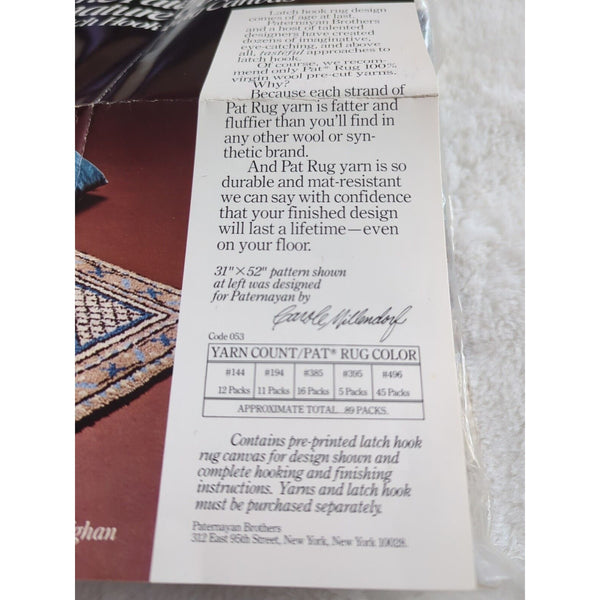 Canvas
Latch hook rug design
comes of age at last.
Paternayan Brothers
and a host of talented
designers have created
dozens of imaginative,
eye-catching, and above
all, tasteful approaches to
latch hook.
Of course, we recom-
mend only Pat® Rug 100%
virgin wool pre-cut yarns.
Why?
Because each strand of
Pat Rug yarn is fatter and
fluffier than you'll find in
any other wool or syn-
thetic brand.
And Pat Rug yarn is so
durable and mat-resistant
we can say with confidence
that your finished design
will last a lifetime—even
on your floor.
31"×52" pattern shown
at left was designed
for Paternayan by
Carole Millendorf
Code 053
YARN COUNT/PAT® RUG COLOR
#144 #194 #385 #395 #496
12 Packs 11 Packs 16 Packs 5 Packs 45 Packs
APPROXIMATE TOTAL 89 PACKS.
Contains pre-printed latch hook
rug canvas for design shown and
complete hooking and finishing
instructions. Yarns and latch hook
must be purchased separately.
Paternayan Brothers
312 East 95th Street, New York, New York 10028.
ghan